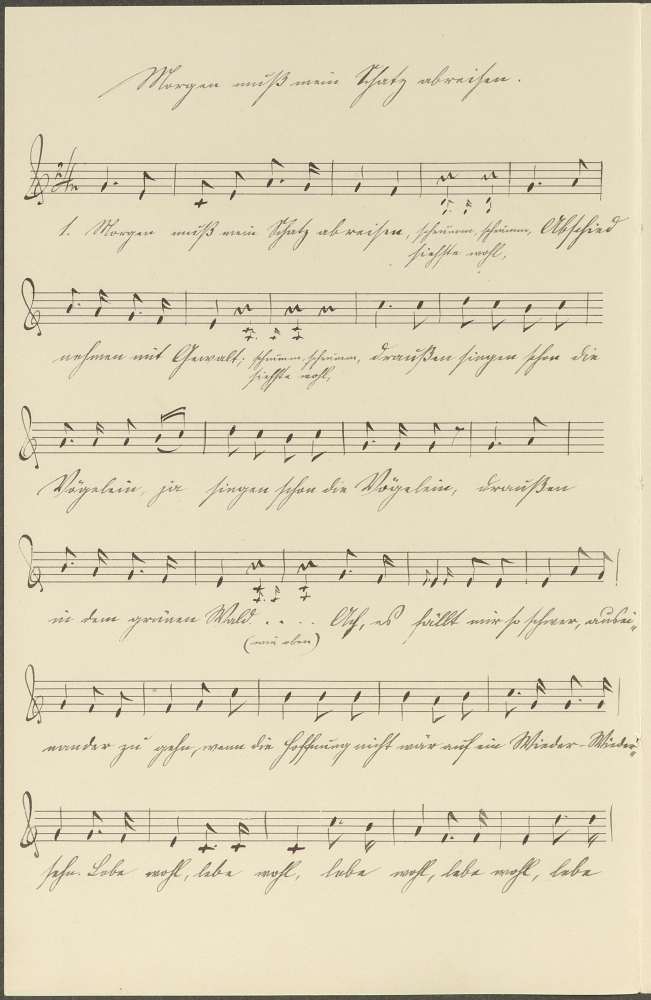 Morgen muß mein Schatz abreisen.
2/4
1. Morgen muß mein Schatz abreisen, schrumm, schrumm, Abschied
siehste wohl,
nehmen mit Gewalt; schrumm, schrumm, draußen singen schon die
siehste wohl,
Vögelein, ja singen schon die Vögelein, draußen
in dem grünen Wald . . . . Ach, es fällt mir so schwer, ausei-
(wie oben)
nander zu gehn, wenn die Hoffnung nicht wär auf ein Wieder-Wieder-
sehn. Lebe wohl, lebe wohl, lebe wohl, lebe wohl, lebe